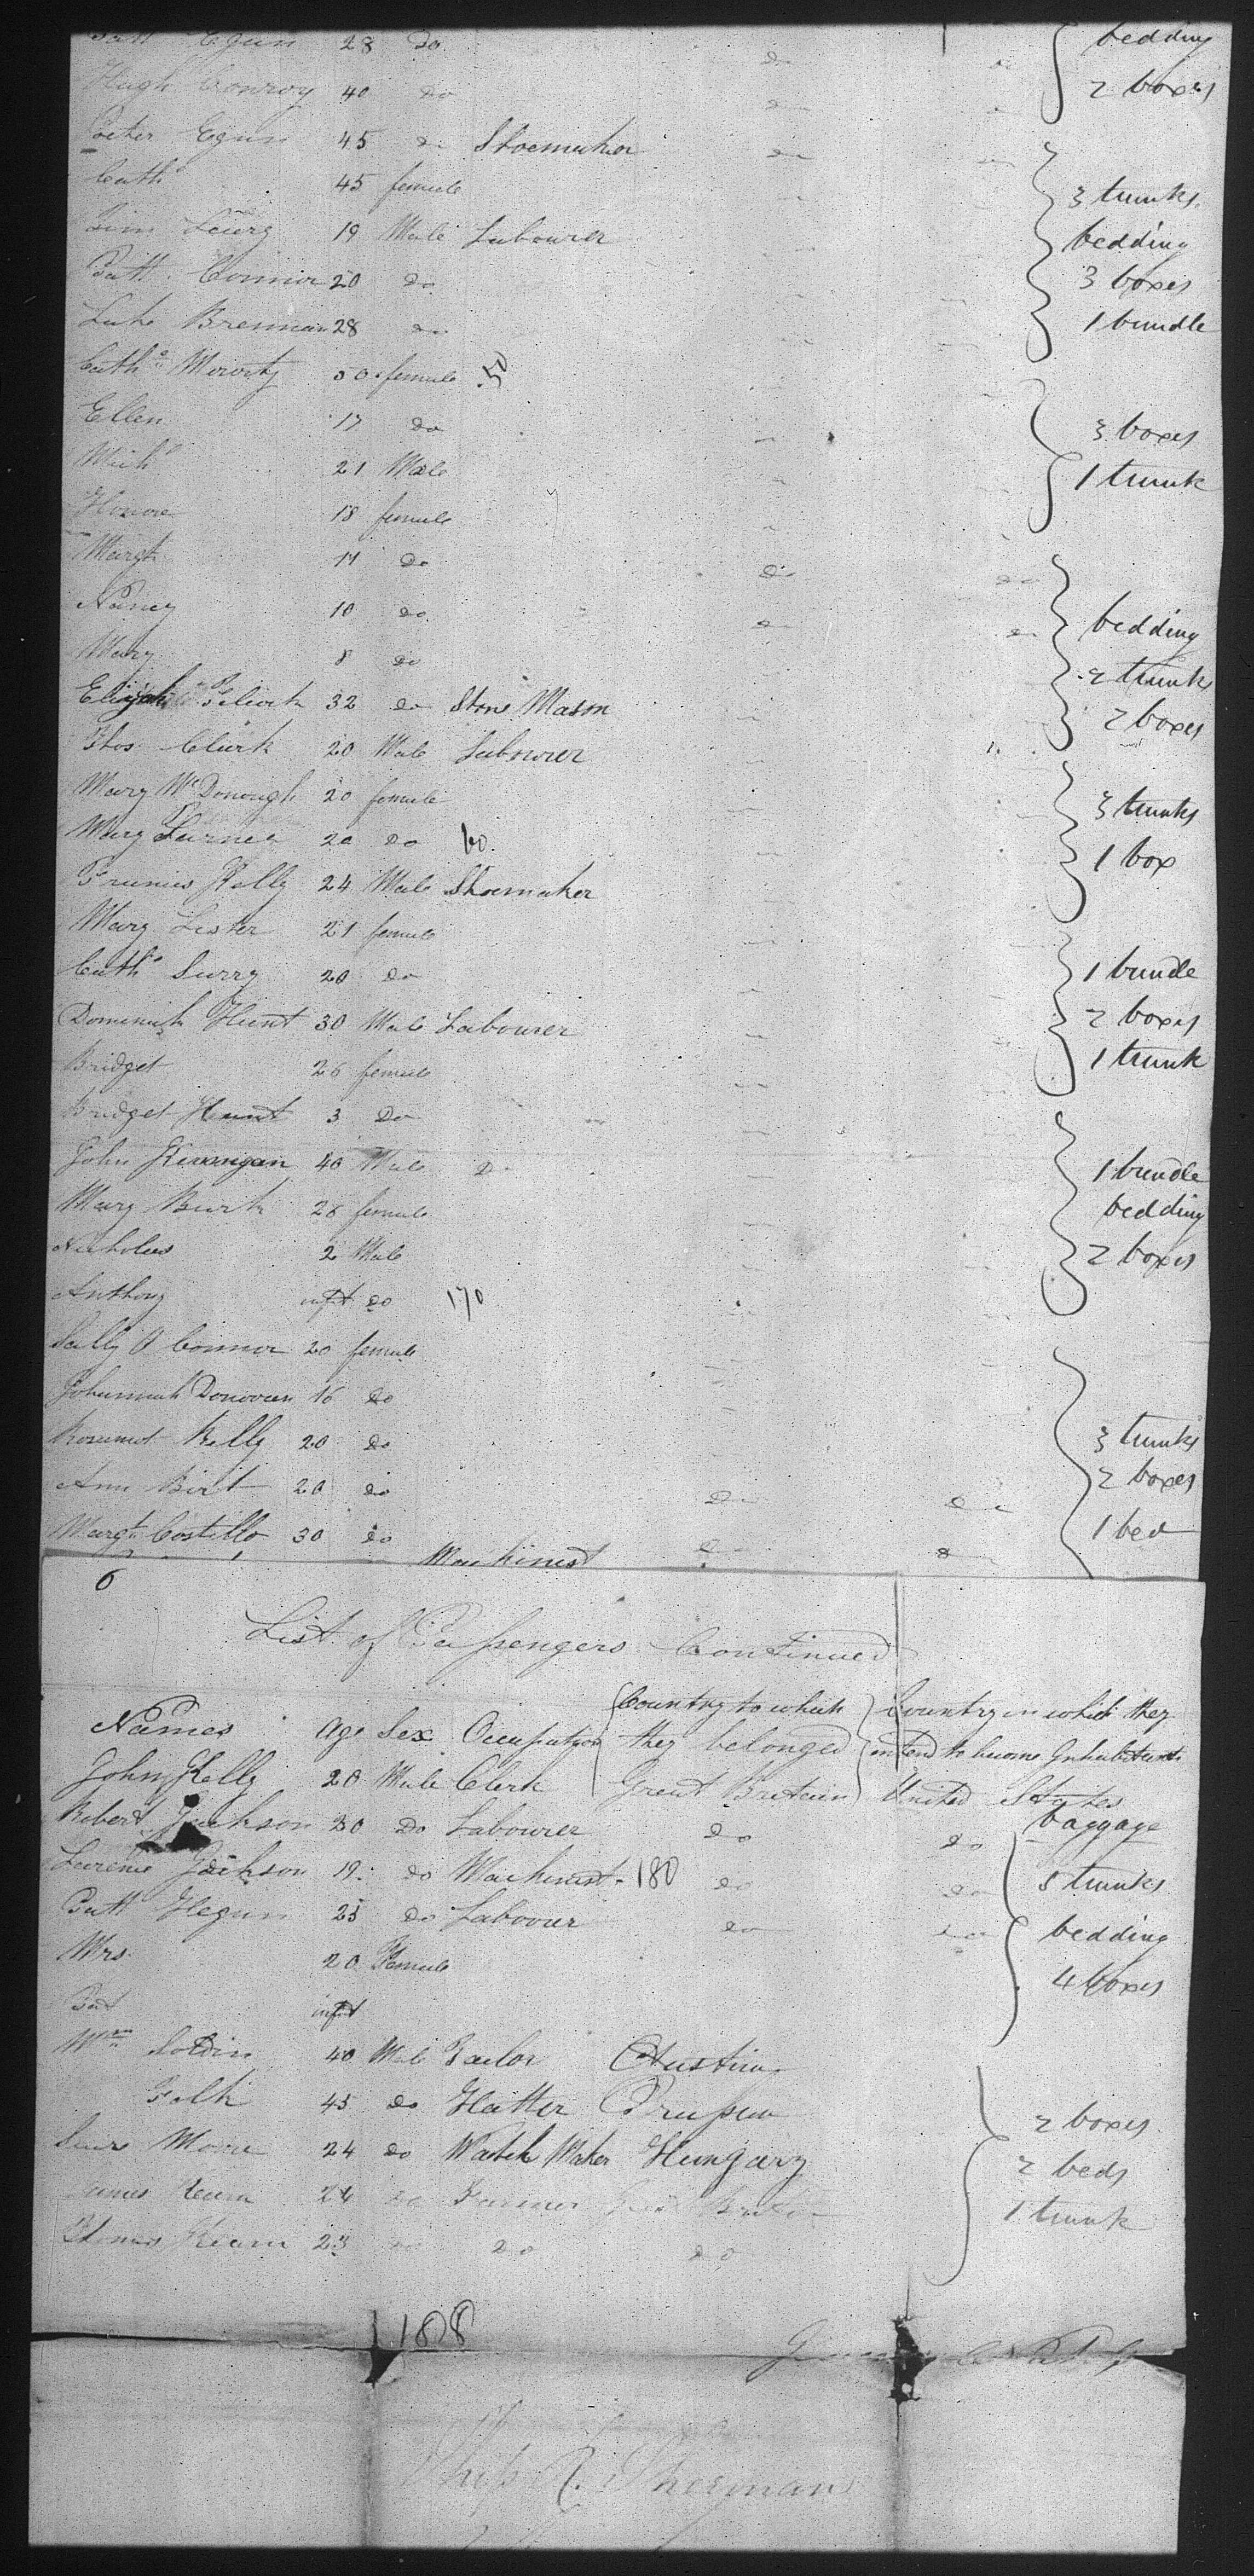 Patt Egan 28 do bedding
Hugh Conroy 40 do do 2 boxes
Peter Egan 45 do Shoemaker do
Cath 45 female 3 trunks
Leary 19 Male Labourer bedding
Patt Connor 20 do 3 boxes
Luke Brennan 28 do 1 bundle
Cath Moriorty 50 female 50
Ellen 17 do 3 boxes
Mich 21 Male 1 trunk
Honore 18 female
Margt do do do
Nancy 10 do do do bedding
Mary 8 do 2 trunks
Elijah 32 do Stone Mason 2 boxes
Thos Clark 20 Male Labourer
Mary McDonough 20 female 3 trunks
Mary 20 do 60 1 box
Francis Kelly 24 Male Shoemaker
Mary Lester 21 female
Cath 20 do 1 bundle
Dominick Hunt 30 Male Labourer 2 boxes
Bridget 26 female 1 trunk
Bridget Hunt 3 Do
John Kerangan 40 Male Do 1 bundle
Mary Burk 26 female bedding
Nicholas 2 Male 2 boxes
Anthony inft do 170
Sally O Connor 20 female
Johannah Donovan 16 do
Kelly 20 do 3 trunks
Ann Birt 20 do do do 2 boxes
Margt Costello 30 do do 1 bed
Machinest
6
List of Passengers Continued
Names age Sex Occupation Country to which they belonged Country in which they intend to become Inhabitants
John Kelly 20 Male Clerk Great Britain United States
Robert Jackson 20 Do Labourer do do baggage
Jackson 19 do Machinest 180 do do 5 trunks
Patt Hegan 25 do Labourer do do bedding
Mrs 20 Female 4 boxes
Pat infat
Wm 40 Male Tailor Austria
45 do Hatter Prussia 2 boxes
Moore 24 do Watch Maker Hungary 2 beds
James Kearn 24 do Farmer Great Britain 1 trunk
Kearn 23 do do do
188
Ship R. Sherman